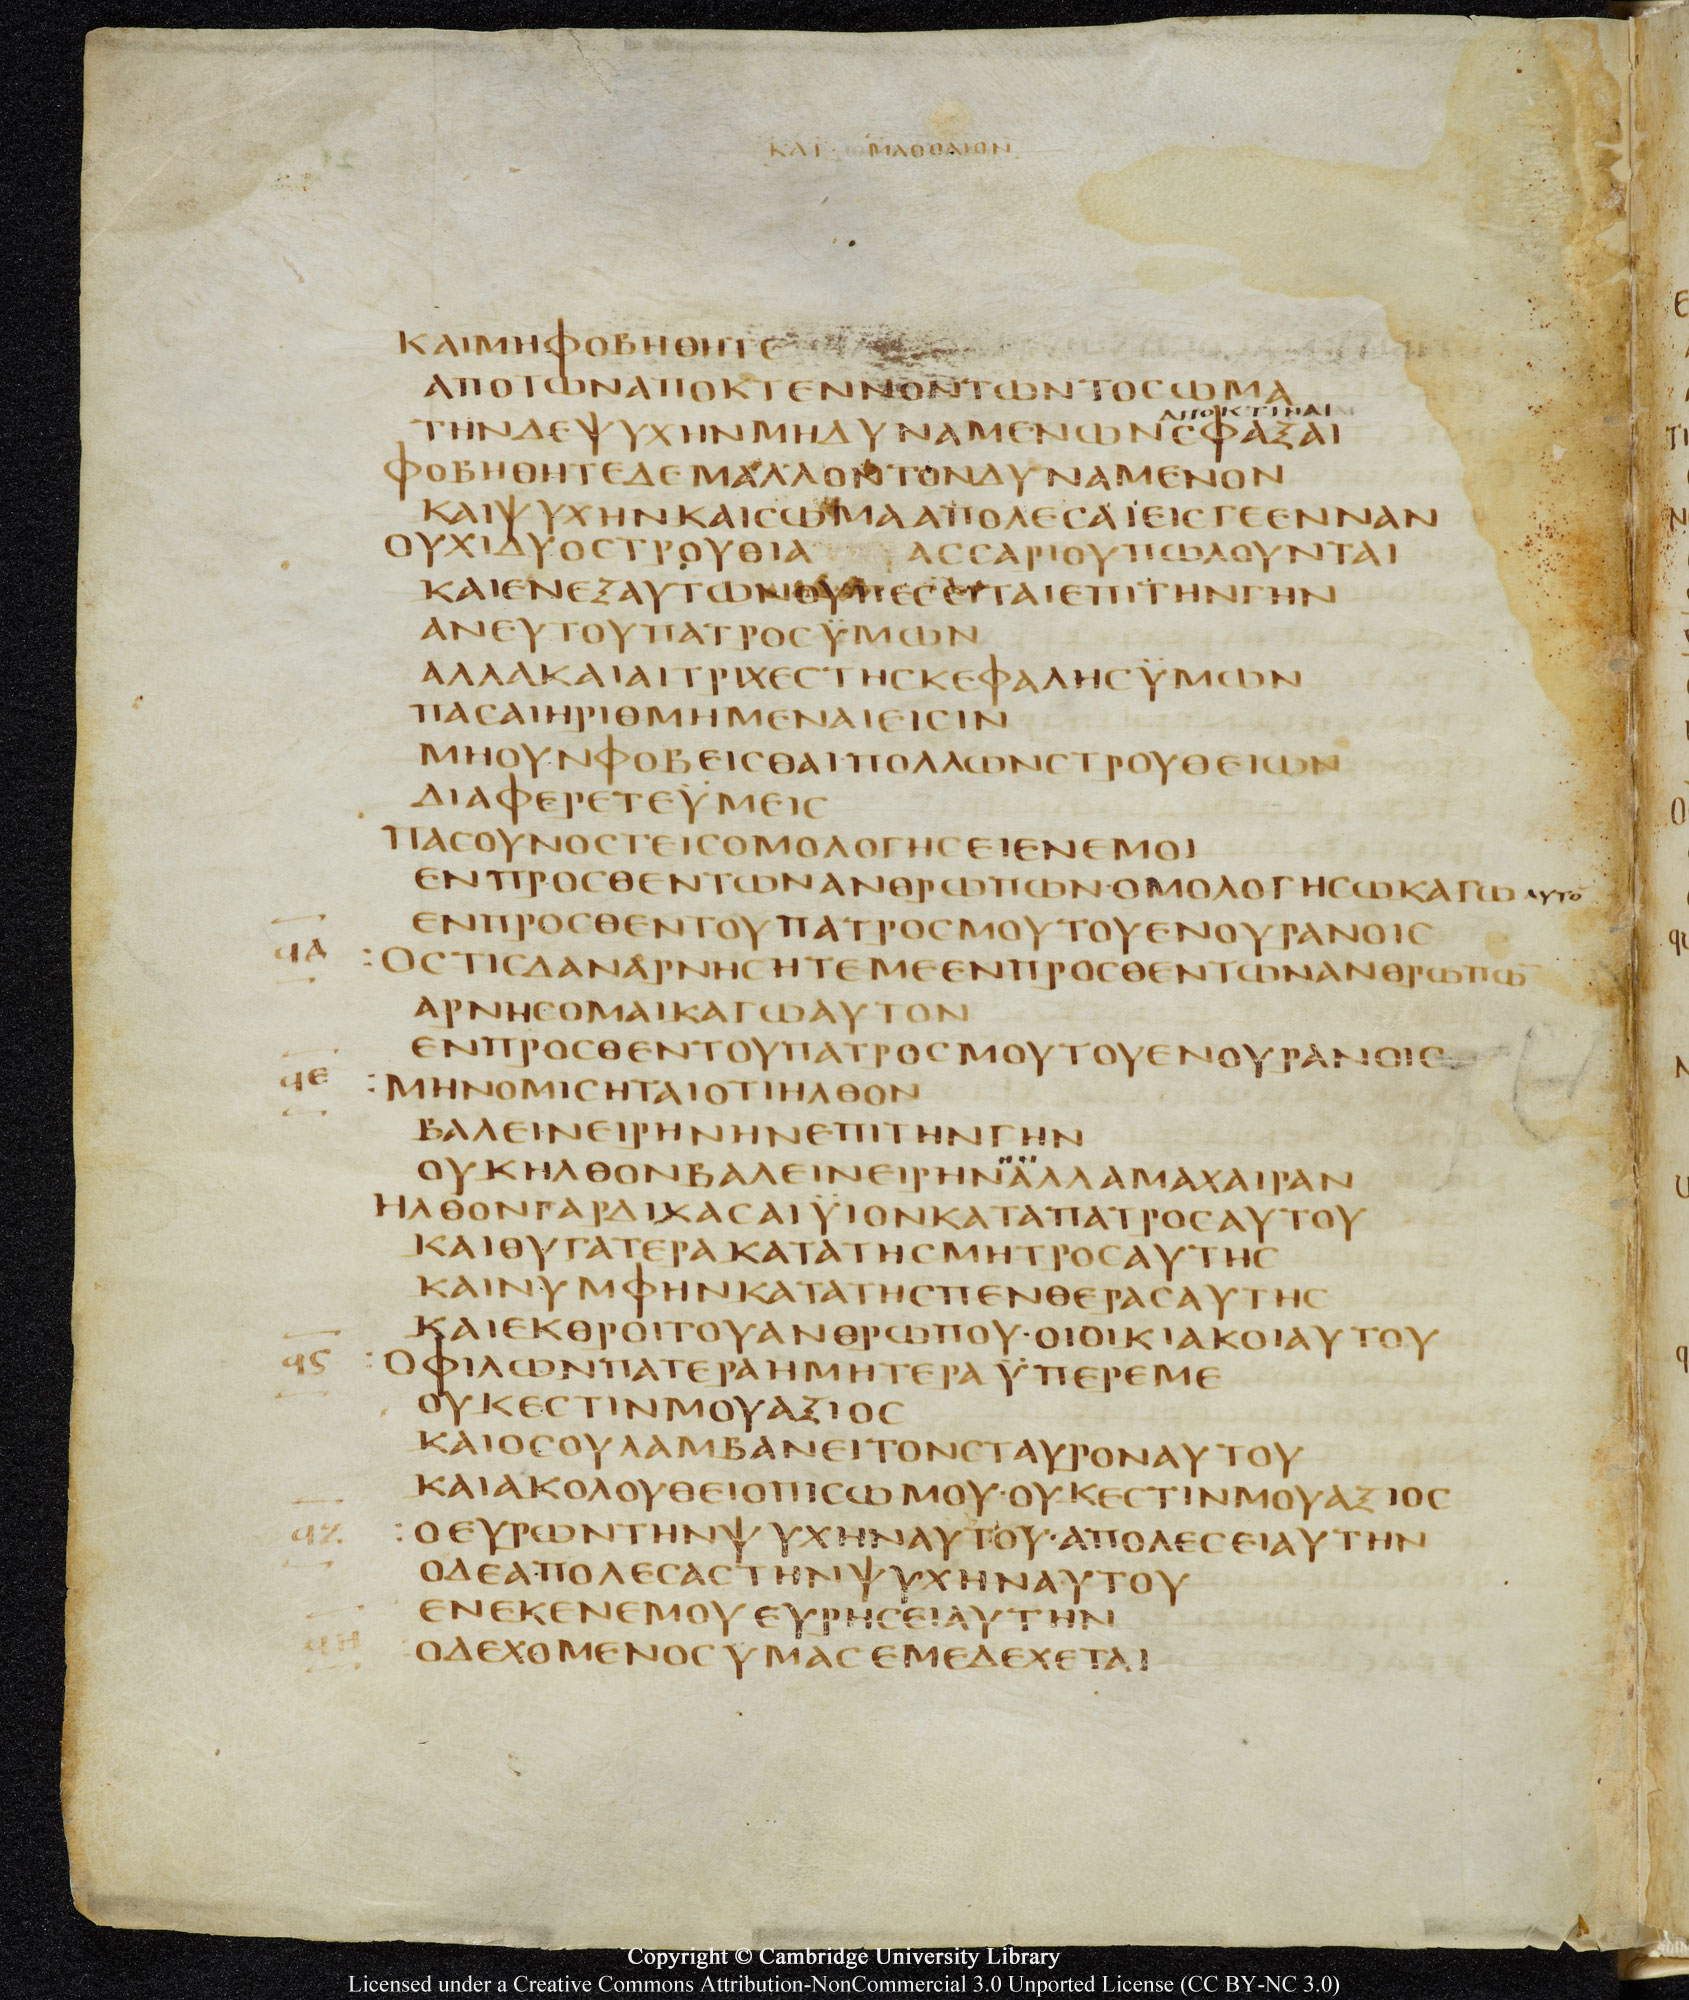 ΚΑΤ ΜΑΘΘΑΙΟΝ
ΚΑΙΜΗΦΟΒΗΘΗΤΕ
ΑΠΟΤΩΝΑΠΟΚΤΕΝΝΟΝΤΩΝΤΟΣΩΜΑ
ΑΠΟΚΤΙΝΑΙ
ΤΗΝΔΕΨΥΧΗΝΜΗΔΥΝΑΜΕΝΩΝΣΦΑΞΑΙ
ΦΟΒΗΘΗΤΕΔΕΜΑΛΛΟΝΤΟΝΔΥΝΑΜΕΝΟΝ
ΚΑΙΨΥΧΗΝΚΑΙΣΩΜΑΑΠΟΛΕΣΑΙΕΙΣΓΕΕΝΝΑΝ
ΟΥΧΙΔΥΟΣΤΡΟΥΘΙΑ ΑΣΣΑΡΙΟΥΠΩΛΟΥΝΤΑΙ
ΚΑΙΕΝΕΞΑΥΤΩΝΟΥΠΕΣΕΙΤΑΙΕΠΙΤΗΝΓΗΝ
ΑΝΕΥΤΟΥΠΑΤΡΟΣΫΜΩΝ
ΑΛΛΑΚΑΙΑΙΤΡΙΧΕΣΤΗΣΚΕΦΑΛΗΣΫΜΩΝ
ΠΑΣΑΙΗΡΙΘΜΗΜΕΝΑΙΕΙΣΙΝ
ΜΗΟΥΝΦΟΒΕΙΣΘΑΙ·ΠΟΛΛΩΝΣΤΡΟΥΘΕΙΩΝ
ΔΙΑΦΕΡΕΤΕΫΜΕΙΣ
ΠΑΣΟΥΝΟΣΤΕΙΣΟΜΟΛΟΓΗΣΕΙΕΝΕΜΟΙ
ΕΝΠΡΟΣΘΕΝΤΩΝΑΝΘΡΩΠΩΝ·ΟΜΟΛΟΓΗΣΩΚΑΓΩ ΑΥΤΟ
ΕΝΠΡΟΣΘΕΝΤΟΥΠΑΤΡΟΣΜΟΥΤΟΥΕΝΟΥΡΑΝΟΙΣ
ϥΔ :ΟΣΤΙΣΔΑΝΑΡΝΗΣΗΤΕΜΕΕΝΠΡΟΣΘΕΝΤΩΝΑΝΘΡΩΠΩ̅
ΑΡΝΗΣΟΜΑΙΚΑΓΩΑΥΤΟΝ
ΕΝΠΡΟΣΘΕΝΤΟΥΠΑΤΡΟΣΜΟΥΤΟΥΕΝΟΥΡΑΝΟΙΣ
ϥΕ :ΜΗΝΟΜΙΣΗΤΑΙΟΤΙΗΛΘΟΝ
ΒΑΛΕΙΝΕΙΡΗΝΗΝΕΠΙΤΗΝΓΗΝ
ΟΥΚΗΛΘΟΝΒΑΛΕΙΝΕΙΡΗΝΑΛΛΑΜΑΧΑΙΡΑΝ
ΗΛΘΟΝΓΑΡΔΙΧΑΣΑΙΫΙΟΝΚΑΤΑΠΑΤΡΟΣΑΥΤΟΥ
ΚΑΙΘΥΓΑΤΕΡΑΚΑΤΑΤΗΣΜΗΤΡΟΣΑΥΤΗΣ
ΚΑΙΝΥΜΦΗΝΚΑΤΑΤΗΣΠΕΝΘΕΡΑΣΑΥΤΗΣ
ΚΑΙΕΚΘΡΟΙΤΟΥΑΝΘΡΩΠΟΥ·ΟΙΟΙΚΙΑΚΟΙΑΥΤΟΥ
ϥϚ :ΟΦΙΛΩΝΠΑΤΕΡΑΗΜΗΤΕΡΑΫΠΕΡΕΜΕ
ΟΥΚΕΣΤΙΝΜΟΥΑΞΙΟΣ
ΚΑΙΟΣΟΥΛΑΜΒΑΝΕΙΤΟΝΣΤΑΥΡΟΝΑΥΤΟΥ
ΚΑΙΑΚΟΛΟΥΘΕΙΟΠΙΣΩΜΟΥ·ΟΥΚΕΣΤΙΝΜΟΥΑΞΙΟΣ
ϥΖ :ΟΕΥΡΩΝΤΗΝΨΥΧΗΝΑΥΤΟΥ·ΑΠΟΛΕΣΕΙΑΥΤΗΝ
ΟΔΕΑΠΟΛΕΣΑΣΤΗΝΨΥΧΗΝΑΥΤΟΥ
ΕΝΕΚΕΝΕΜΟΥΕΥΡΗΣΕΙΑΥΤΗΝ
ϥΗ :ΟΔΕΧΟΜΕΝΟΣΫΜΑΣΕΜΕΔΕΧΕΤΑΙ
Copyright © Cambridge University Library
Licensed under a Creative Commons Attribution-NonCommercial 3.0 Unported License (CC BY-NC 3.0)